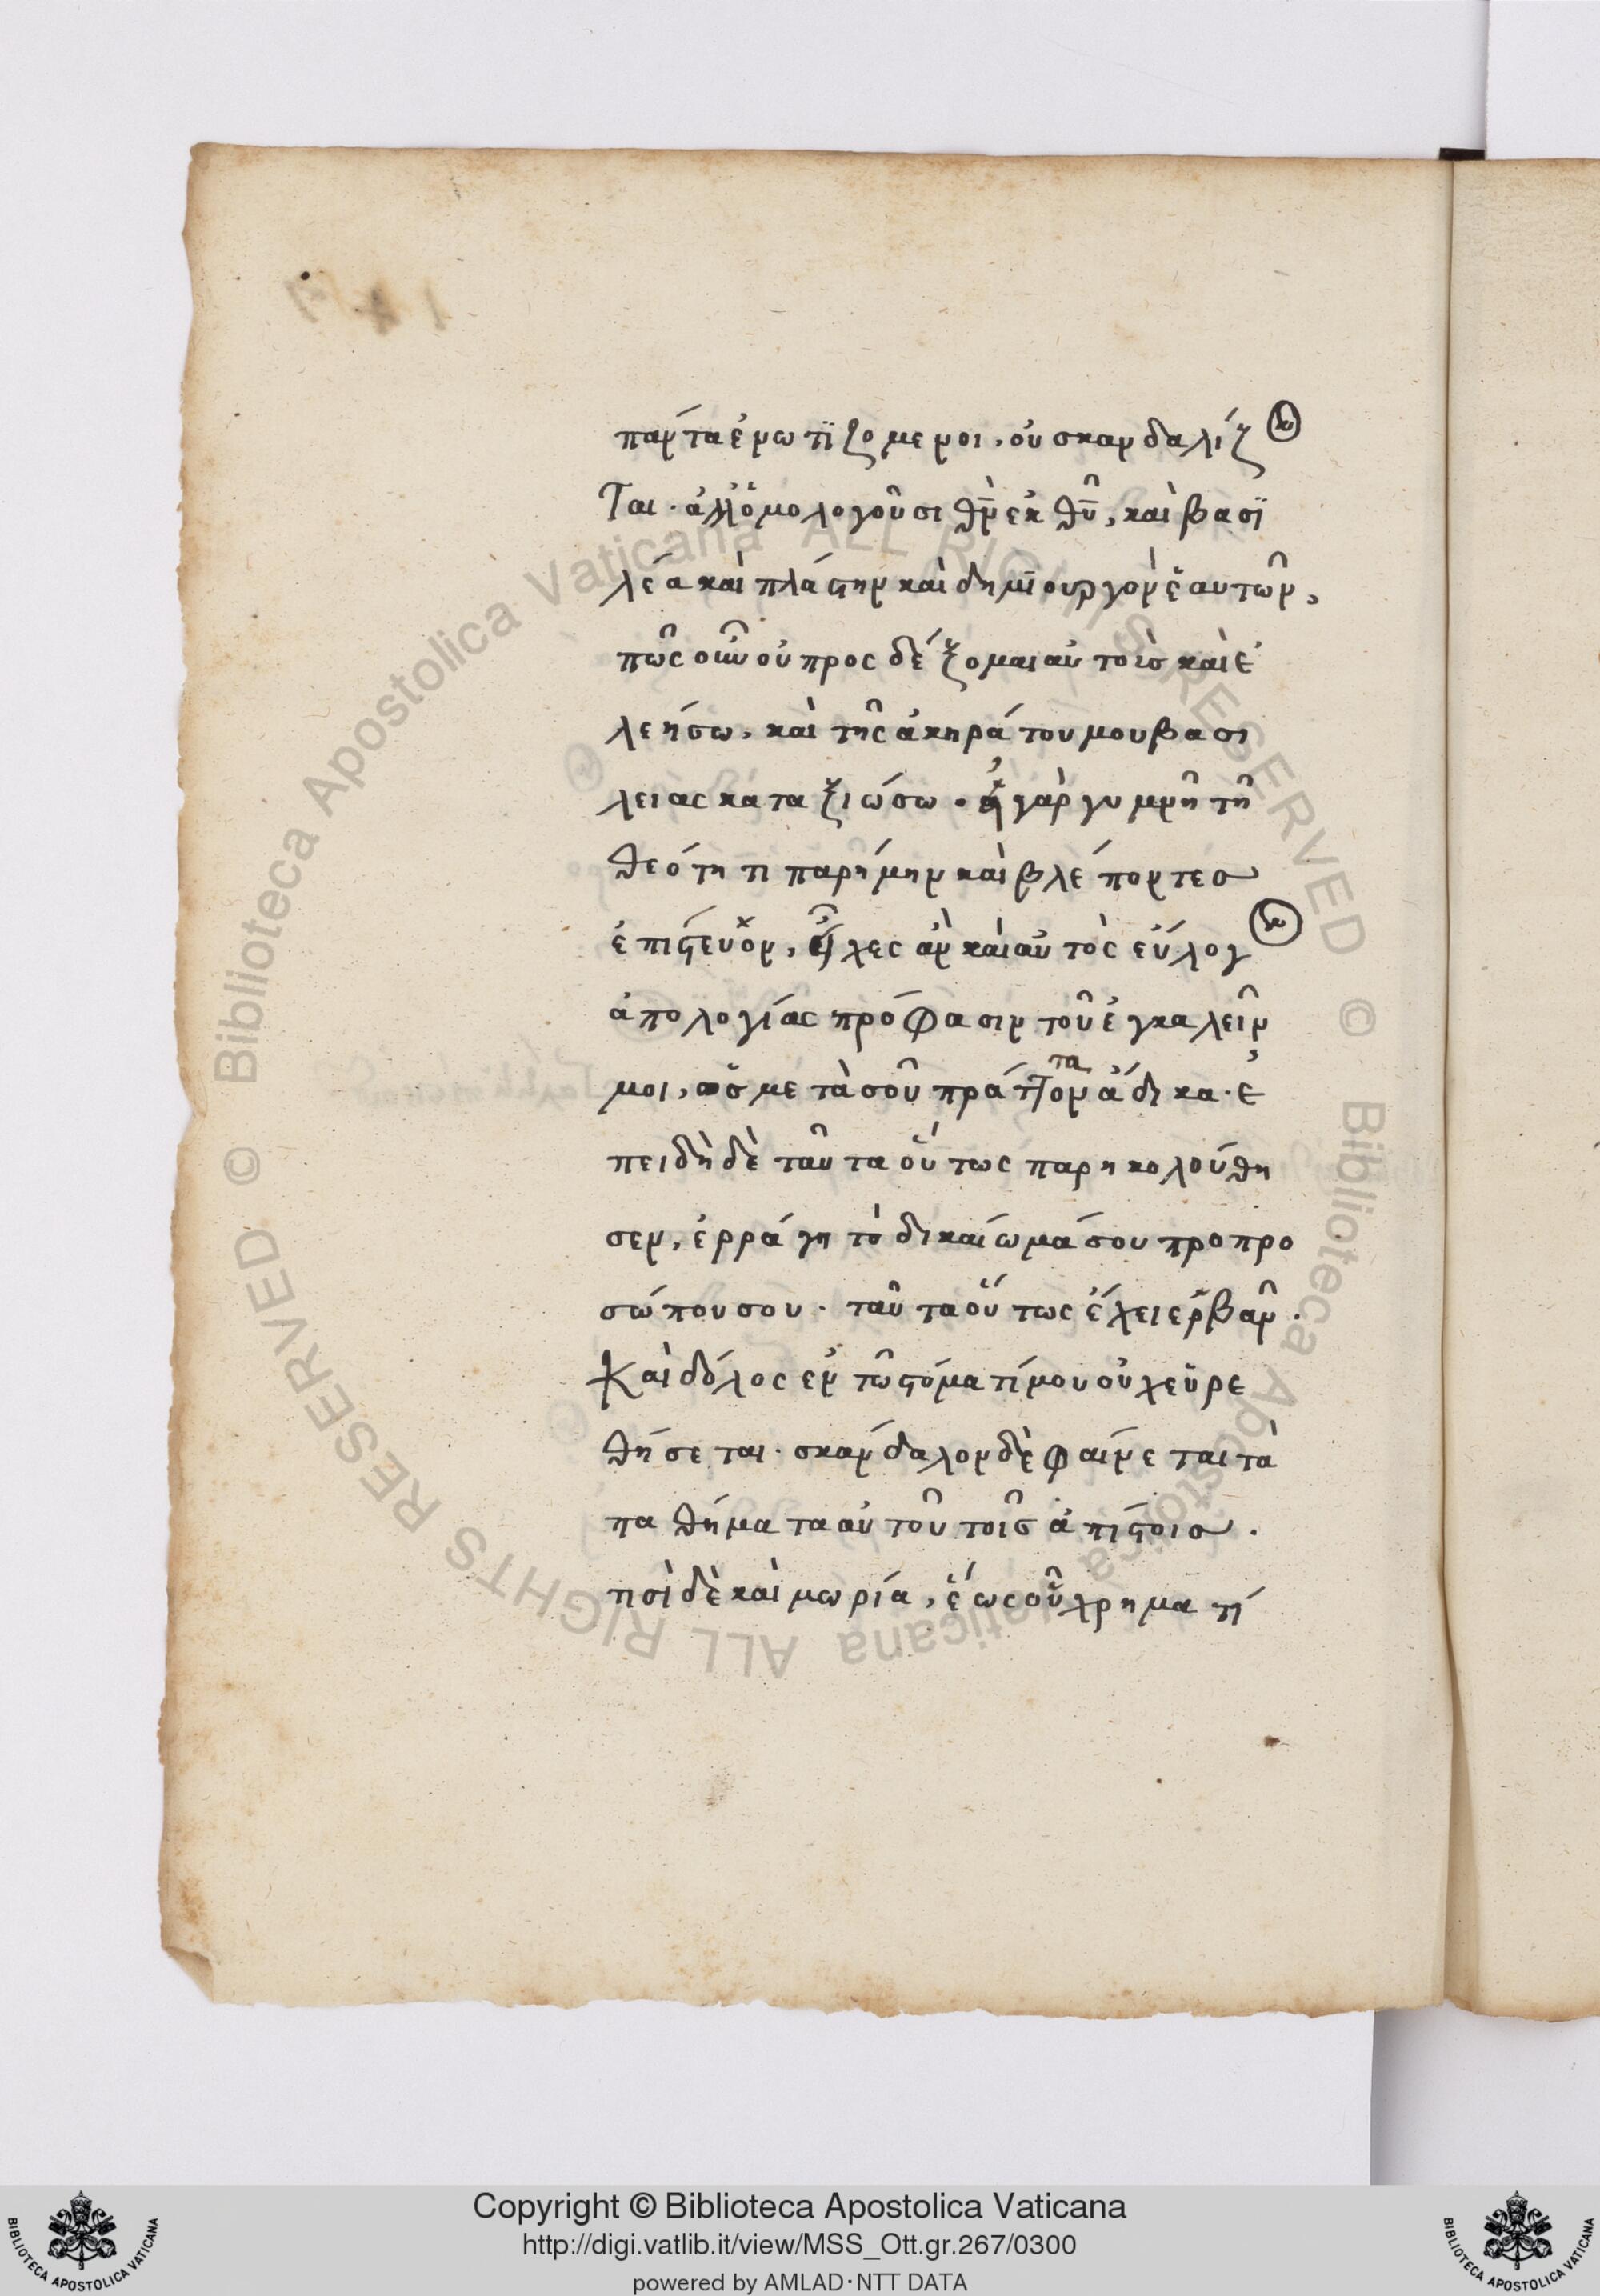 πάντα ἐνωτιζόμενοι, οὐ σκανδαλίζον
ται. ἀλλ' ὁμολογοῦσι θν̅ ἐκ θυ̅, καὶ βασι
λέα καὶ πλάστην καὶ δημιουργὸν ἑαυτῶν,
πῶς οὖν οὐ προσδέξομαι αὐτοὺσ καὶ ἐ
λεήσω, καὶ τῆς ἀκηράτου μου βασι
λειας καταξιώσω. εἰ γὰρ γυμνῆ τῆ
θεότητι παρήμην καὶ βλέποντεσ
ἐπίστευον, εἶχες ἂν καὶ αὐτὸς εὔλογον
ἀπολογίας πρόφασιν τοῦ ἐγκαλεῖν
μοι, ὡσ μετὰ σοῦ πράττοντα ἄδικα. ἐ
πειδὴ δὲ ταῦτα οὕτως παρηκολούθη
σεν, ἐρράγη τὸ δικαίωμά σου προ προ
σώπου σου. ταῦτα οὕτως ἔχει ἐρβᾶν.
Καὶ δόλος ἐν τῶ στόματί μου οὐχ εὑρε
θήσεται. σκάνδαλον δὲ φαίνεται τὰ
παθήματα αὐτοῦ τοῖσ ἀπίστοισ.
τισὶ δὲ καὶ μωρία, ἕως οὗ χρηματί
Copyright © Biblioteca Apostolica Vaticana
http://digi.vatlib.it/view/MSS_Ott.gr.267/0300
powered by AMLAD·NTT DATA
BIBLIOTECA APOSTOLICA VATICANA
BIBLIOTECA APOSTOLICA VATICANA
© Biblioteca Apostolica Vaticana ALL RIGHTS RESERVED © Biblioteca Apostolica Vaticana ALL RIGHTS RESERVED